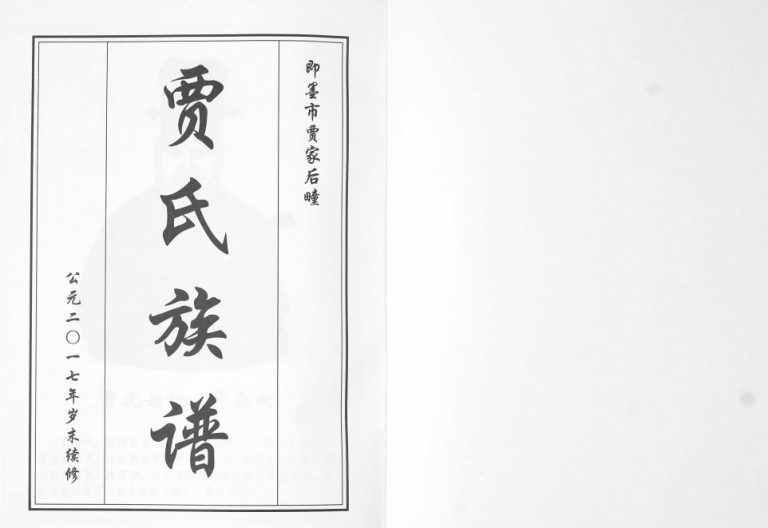 即墨市贾家后疃
贾氏族谱
公元二〇一七年岁末续修